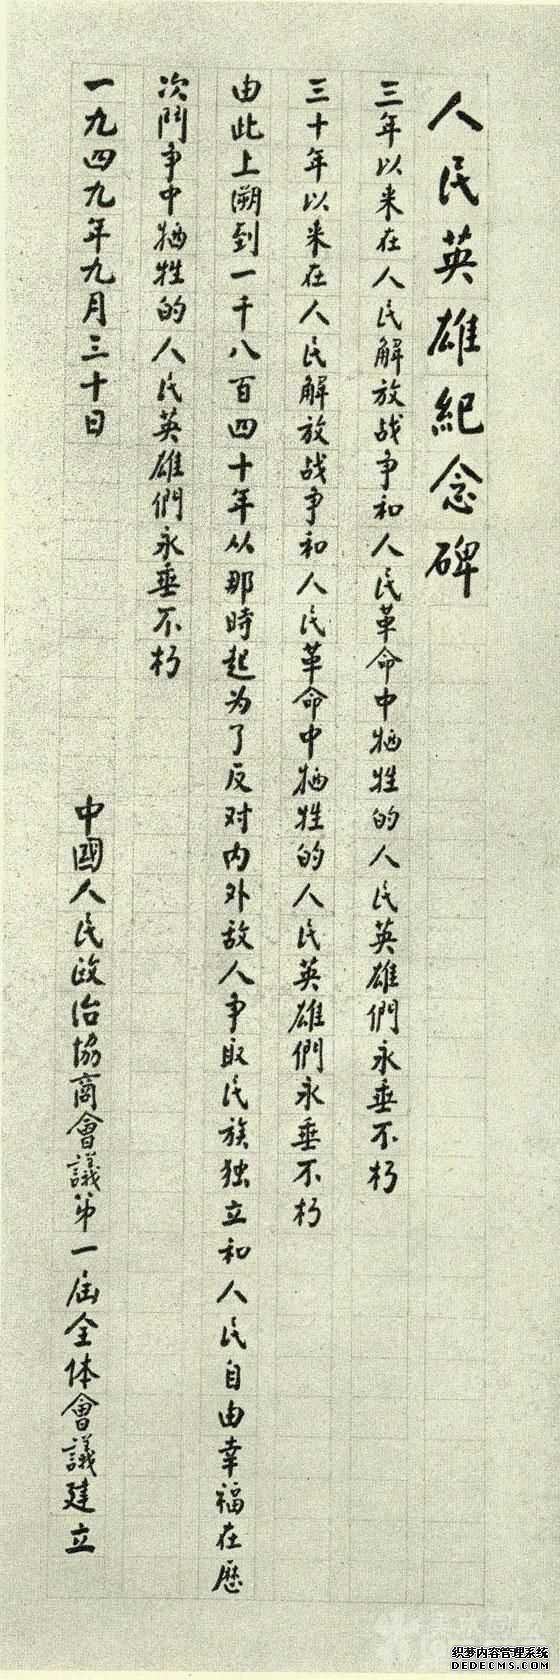 人民英雄紀念碑
三年以来在人民解放战争和人民革命中牺牲的人民英雄們永垂不朽
三十年以来在人民解放战争和人民革命中牺牲的人民英雄們永垂不朽
由此上溯到一千八百四十年从那時起为了反对内外敌人争取民族独立和人民自由幸福在歷
次鬥争中牺牲的人民英雄們永垂不朽
一九四九年九月三十日
中國人民政治協商會議第一届全体會議建立
织梦内容管理系统
DEDECMS.COM